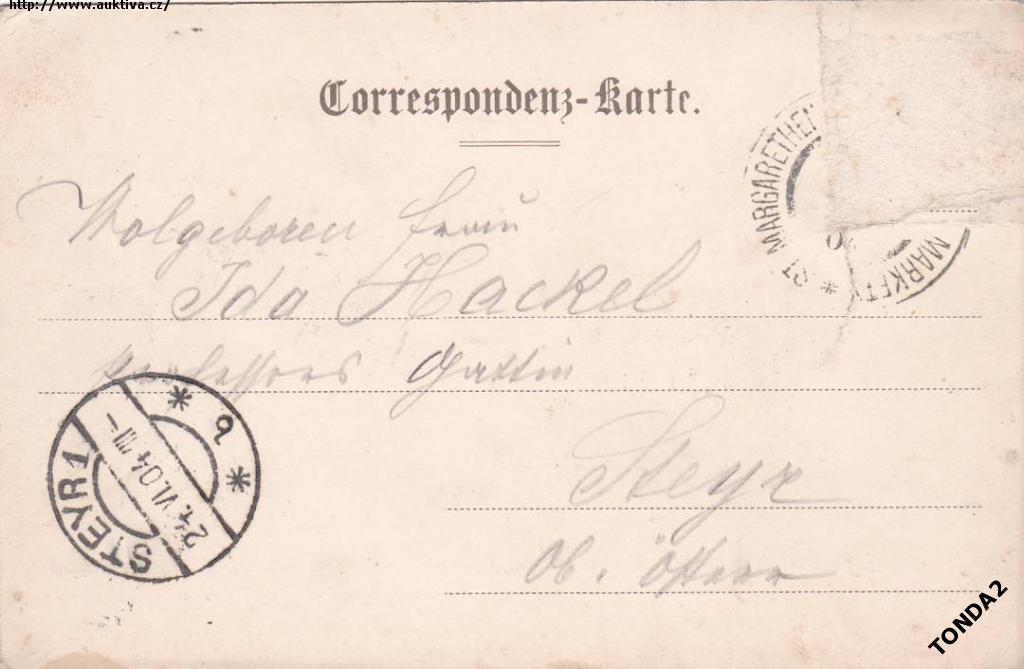 http://www.auktiva.cz/
Correspondenz-Karte.
Wolgeboren Frau
Ida Hackel
Professors Gattin
Steyr
Ob. Österr
* ST MARGARETHEN
MARKT
STEYR 1
24.VI.04
* b *
TONDA2